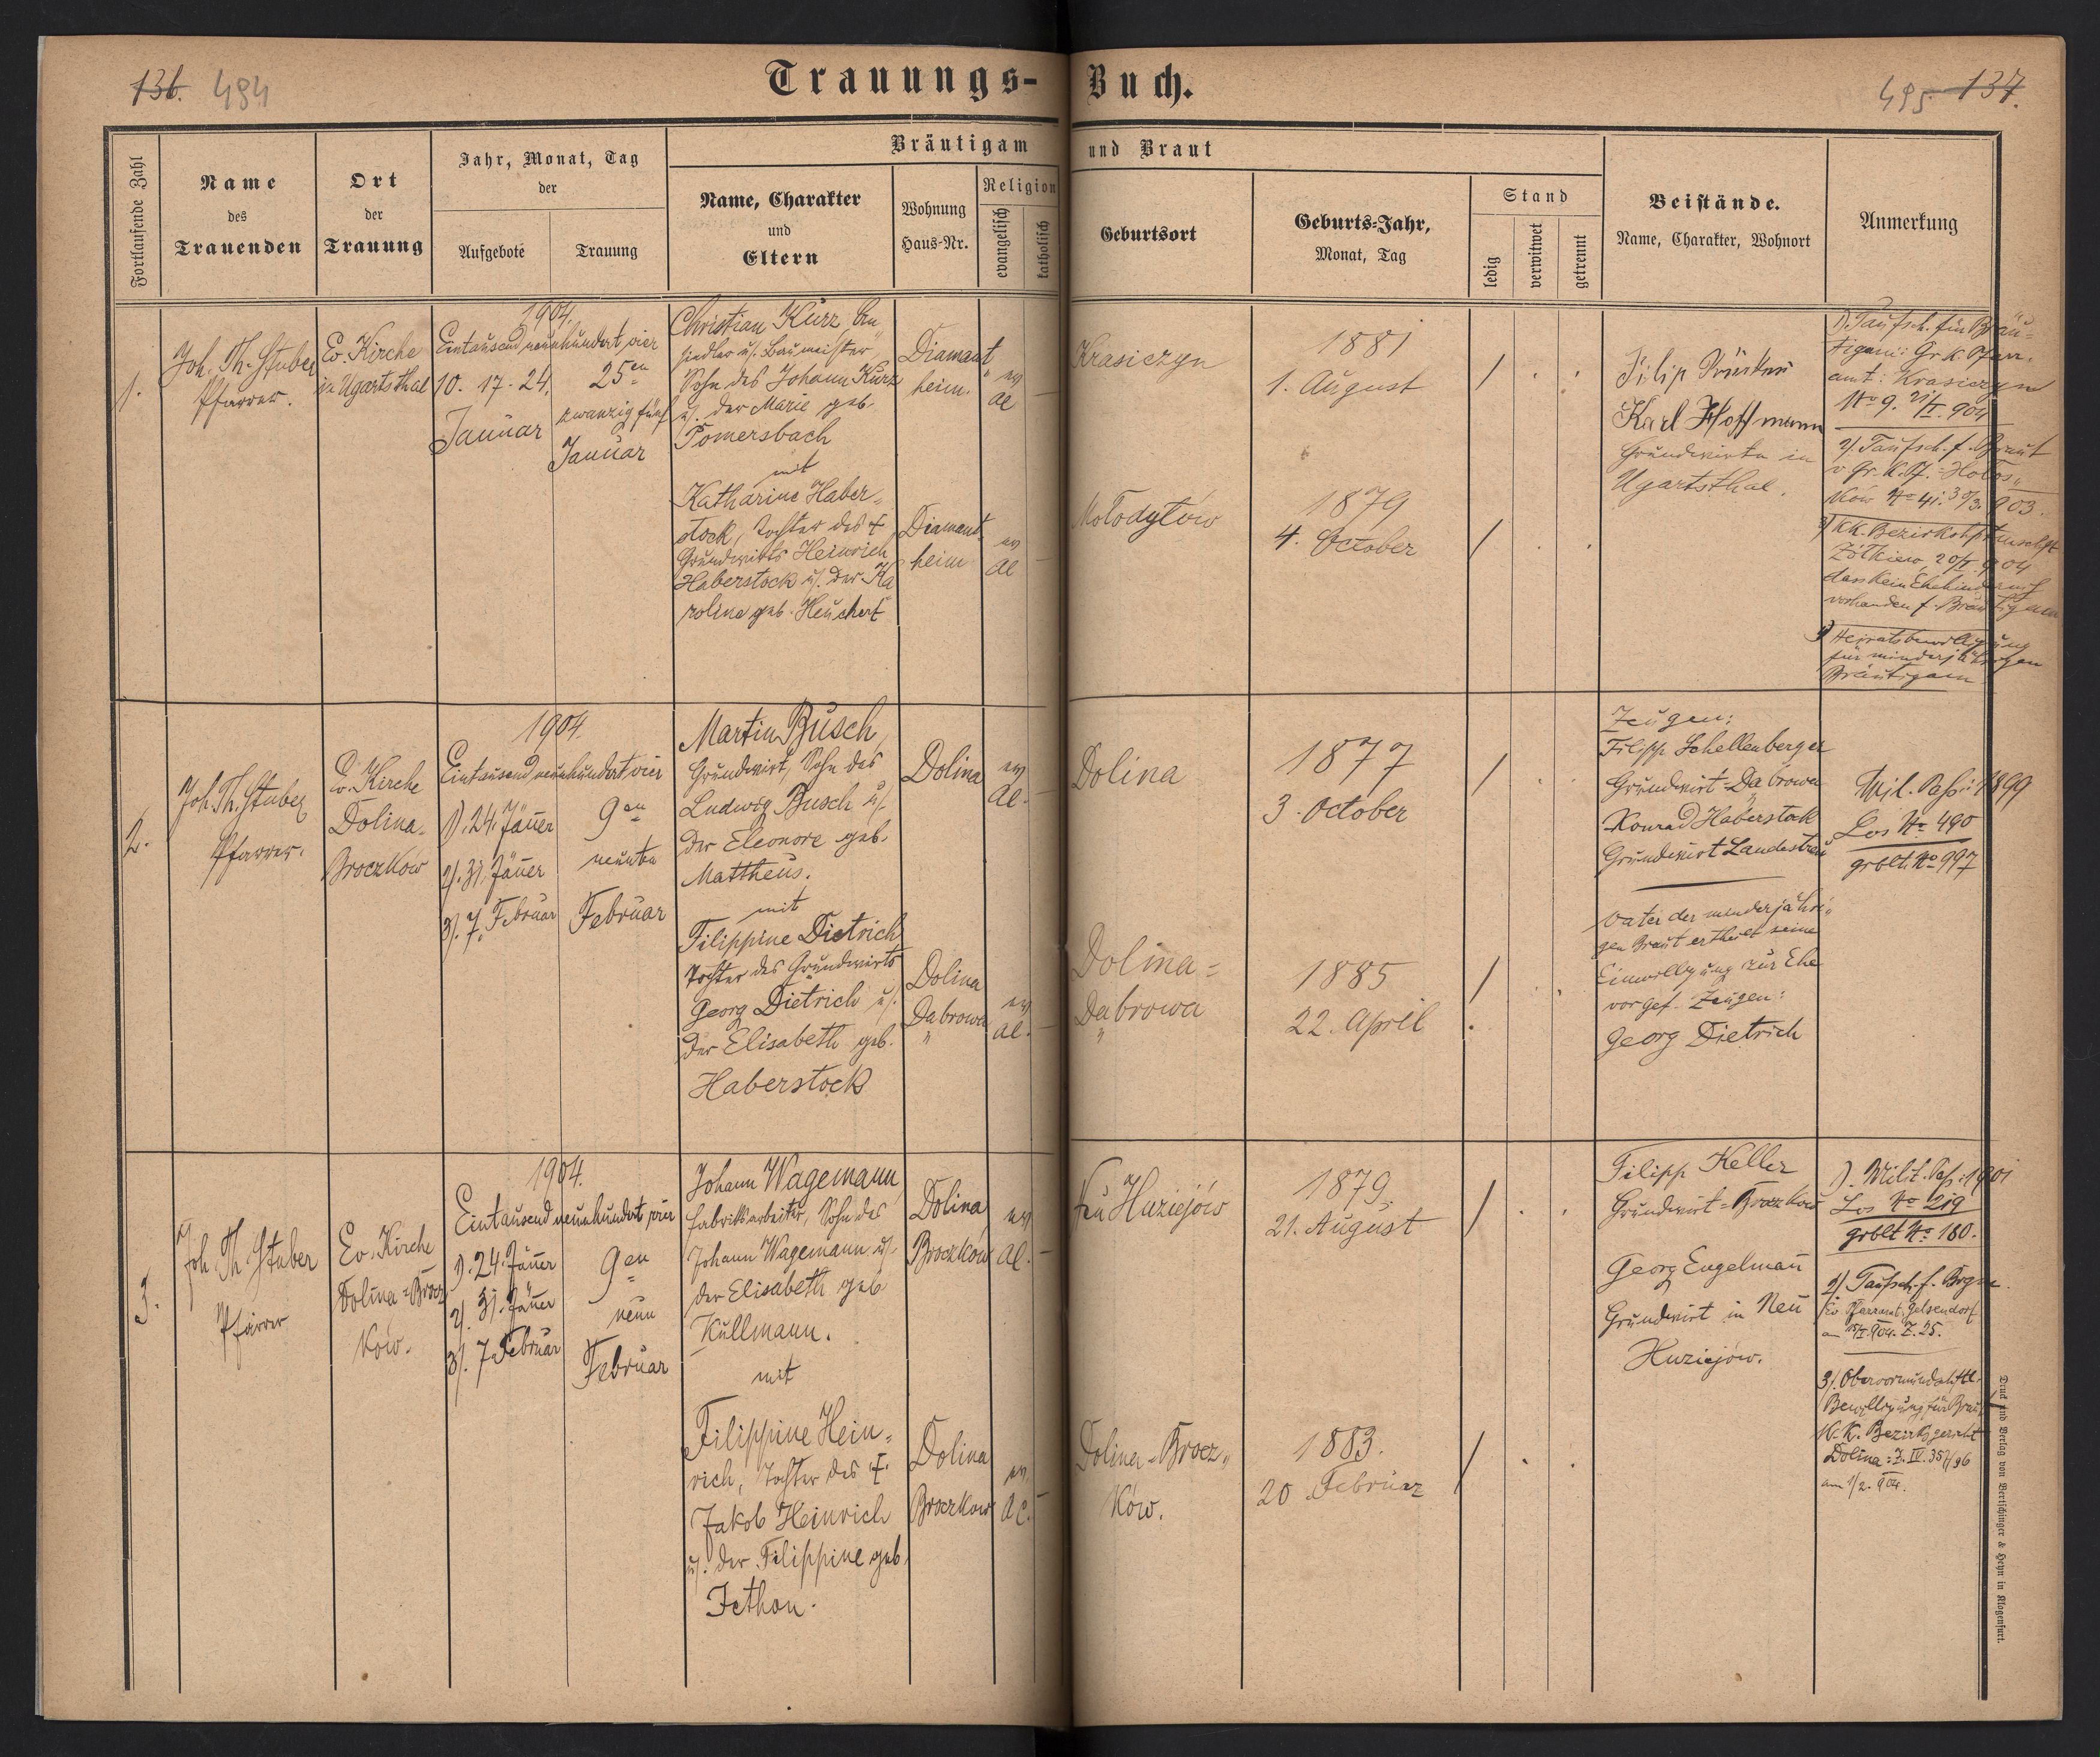 136. 484
Trauungs-Buch.
495. 137.
Fortlaufende Zahl
Name
des
Trauenden
Ort
der
Trauung
Jahr, Monat, Tag
der
Aufgebote
Trauung
Bräutigam und Braut
Name, Charakter
und
Eltern
Wohnung
Haus-Nr.
Religion
evangelisch
katholisch
Geburtsort
Geburts-Jahr,
Monat, Tag
Stand
ledig
verwitwet
getrennt
Beistände.
Name, Charakter, Wohnort
Anmerkung
1.
Joh. Th. Stuber
Pfarrer.
Ev. Kirche
in Ugartsthal
1904.
Eintausend neunhundert vier
10. 17. 24.
Januar
25en
zwanzig fünf
Januar
Christian Kurz, An
siedler u. Baumeister,
Sohn des Johann Kurz
u. der Marie geb.
Pomersbach
mit
Katharine Haber-
stock, Tochter des †
Grundwirts Heinrich
Haberstock u. der Ka
roline geb. Heuchert
Diamant
heim.
Diamant
heim
ev
AC
ev
AC
Krasiczyn
Mołodytów
1881
1. August
1879
4. October
Filip
Karl Hoffmann
Grundwirte in
Ugartsthal.
1). Taufsch. für Bräu-
tigam: Gr. K. Pfarr-
amt: Krasiczyn
No 9. 21/I. 904
2). Taufsch. f. Braut
v. Gr. K. Pf. = Hołos-
ków No 41: 30/3. 903.
3) KK. Bezirkshptmschft
Żółkiew, 20/I. 904
dass kein Ehehinderniss
vorhanden f. Bräutigam
Heiratsbewilligung
für minderjährigen
Bräutigam
2.
Joh. Th. Stuber
Pfarrer.
Ev. Kirche
Dolina-
Broczkow
1904.
Eintausend neunhundert vier
1). 24. Jäner
2). 31. Jäner
3). 7. Februar
9en
neunten
Februar
Martin Busch,
Grundwirt, Sohn des
Ludwig Busch u.
der Eleonore geb.
Mattheus.
mit
Filippine Dietrich
Tochter des Grundwirts
Georg Dietrich u.
der Elisabeth geb.
Haberstock
Dolina
Dolina
Dabrowa
ev
AC.
ev
AC.
Dolina
Dolina=
Dabrowa
1877
3. October
1885
22. April
Zeugen:
Filipp Schellenberger
Grundwirt=Dabrowa
Konrad Haberstock
Grundwirt Landestreu
Vater der minderjähri-
gen Braut ertheilt seine
Einwilligung zur Ehe
vor gef. Zeugen:
Georg Dietrich
Mil. Paß: 1899
Los No 490
grblt. No 997
3.
Joh. Th. Stuber
Pfarrer
Ev. Kirche
Dolina=Brocz-
kow.
1904.
Eintausend neunhundert vier
1). 24. Jäner
2). 31. Jäner
3). 7. Februar
9en
neun
Februar
Johann Wagemann,
Fabriksarbeiter, Sohn des
Johann Wagemann u.
der Elisabeth geb
Kullmann.
mit
Filippine Hein-
rich, Tochter des †
Jakob Heinrich
u. der Filippine geb.
Jethon.
Dolina
Broczkow
Dolina
Broczkow
ev
AC.
ev
AC.
Neu Huziejów
Dolina=Brocz-
ków.
1879.
21. August
1883.
20 Februar
Filipp Keller
Grundwirt=Broczkow
Georg Engelman
Grundwirt in Neu
Huziejow.
1). Milit. Paß: 1901
Los No 219
grblt No 180.
2). Taufsch. f. Brgm.
Ev. Pfarramt Gelsendorf
am 15/I. 904. Z. 25.
3). Obervormundschftl.
Bewilligung für Braut
K. K. Bezirksgericht
Dolina: Z. IV. 357/96
am 1/2. 904.
Druck und Verlag von Bertschinger & Heyn in Klagenfurt.